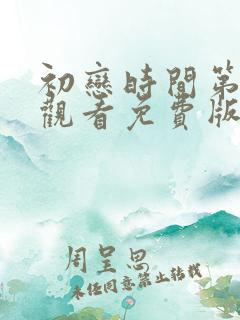 初戀時間第
觀看免費版
周呈思
未经同意禁止转载